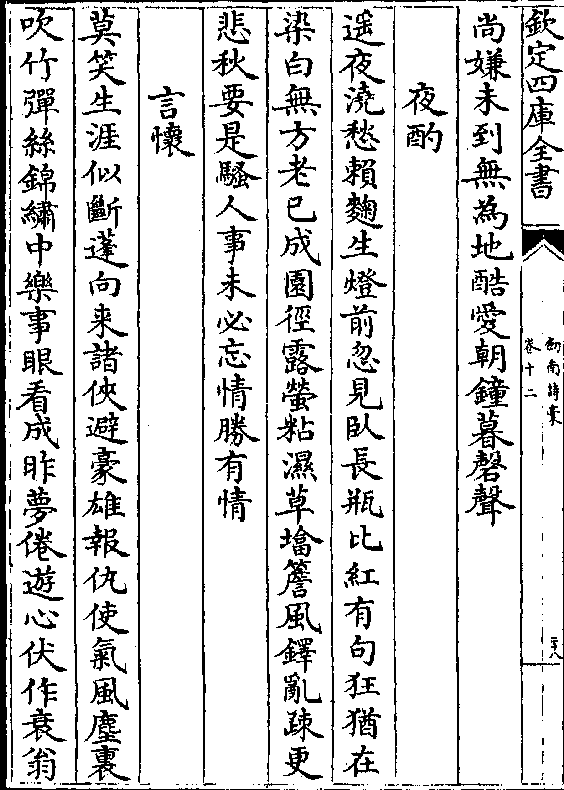 欽定四庫全書
劍南詩稾
卷十二
尚嫌未到無為地酷愛朝鐘暮磬聲
夜酌
遥夜澆愁賴麴生燈前忽見臥長瓶比紅有句狂猶在
染白無方老已成園徑露螢粘濕草墖簷風鐸亂疎更
悲秋要是騷人事未必忘情勝有情
言懷
莫笑生涯似斷蓬向来諸俠避豪雄報仇使氣風塵裏
吹竹彈絲錦繡中樂事眼看成昨夢倦遊心伏作衰翁